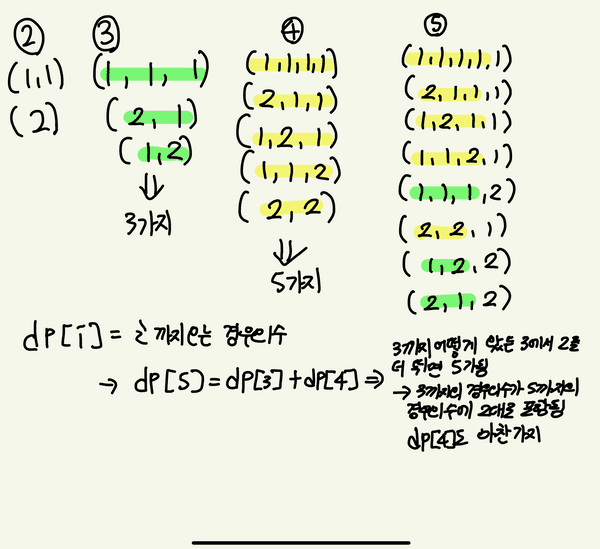 ②
(1,1)
(2)
③
(1, 1, 1)
(2, 1)
(1,2)
3가지
④
(1,1,1,1)
(2,1,1)
(1,2,1)
(1,1,2)
(2,2)
5가지
⑤
(1,1,1,1,1)
(2,1,1,1)
(1,2,1,1)
(1,1,2,1)
(1,1,1,2)
(2,2,1)
(1,2,2)
(2,1,2)
dp[i] = i 까지 오는 경우의수
→ dp[5] = dp[3] + dp[4] ⇒
3까지 어떻게 왔든 3에서 2로
더 뛰면 5가됨
→ 3까지의 경우의수가 5까지의
경우의수에 그대로 포함됨
dp[4]도 마찬가지